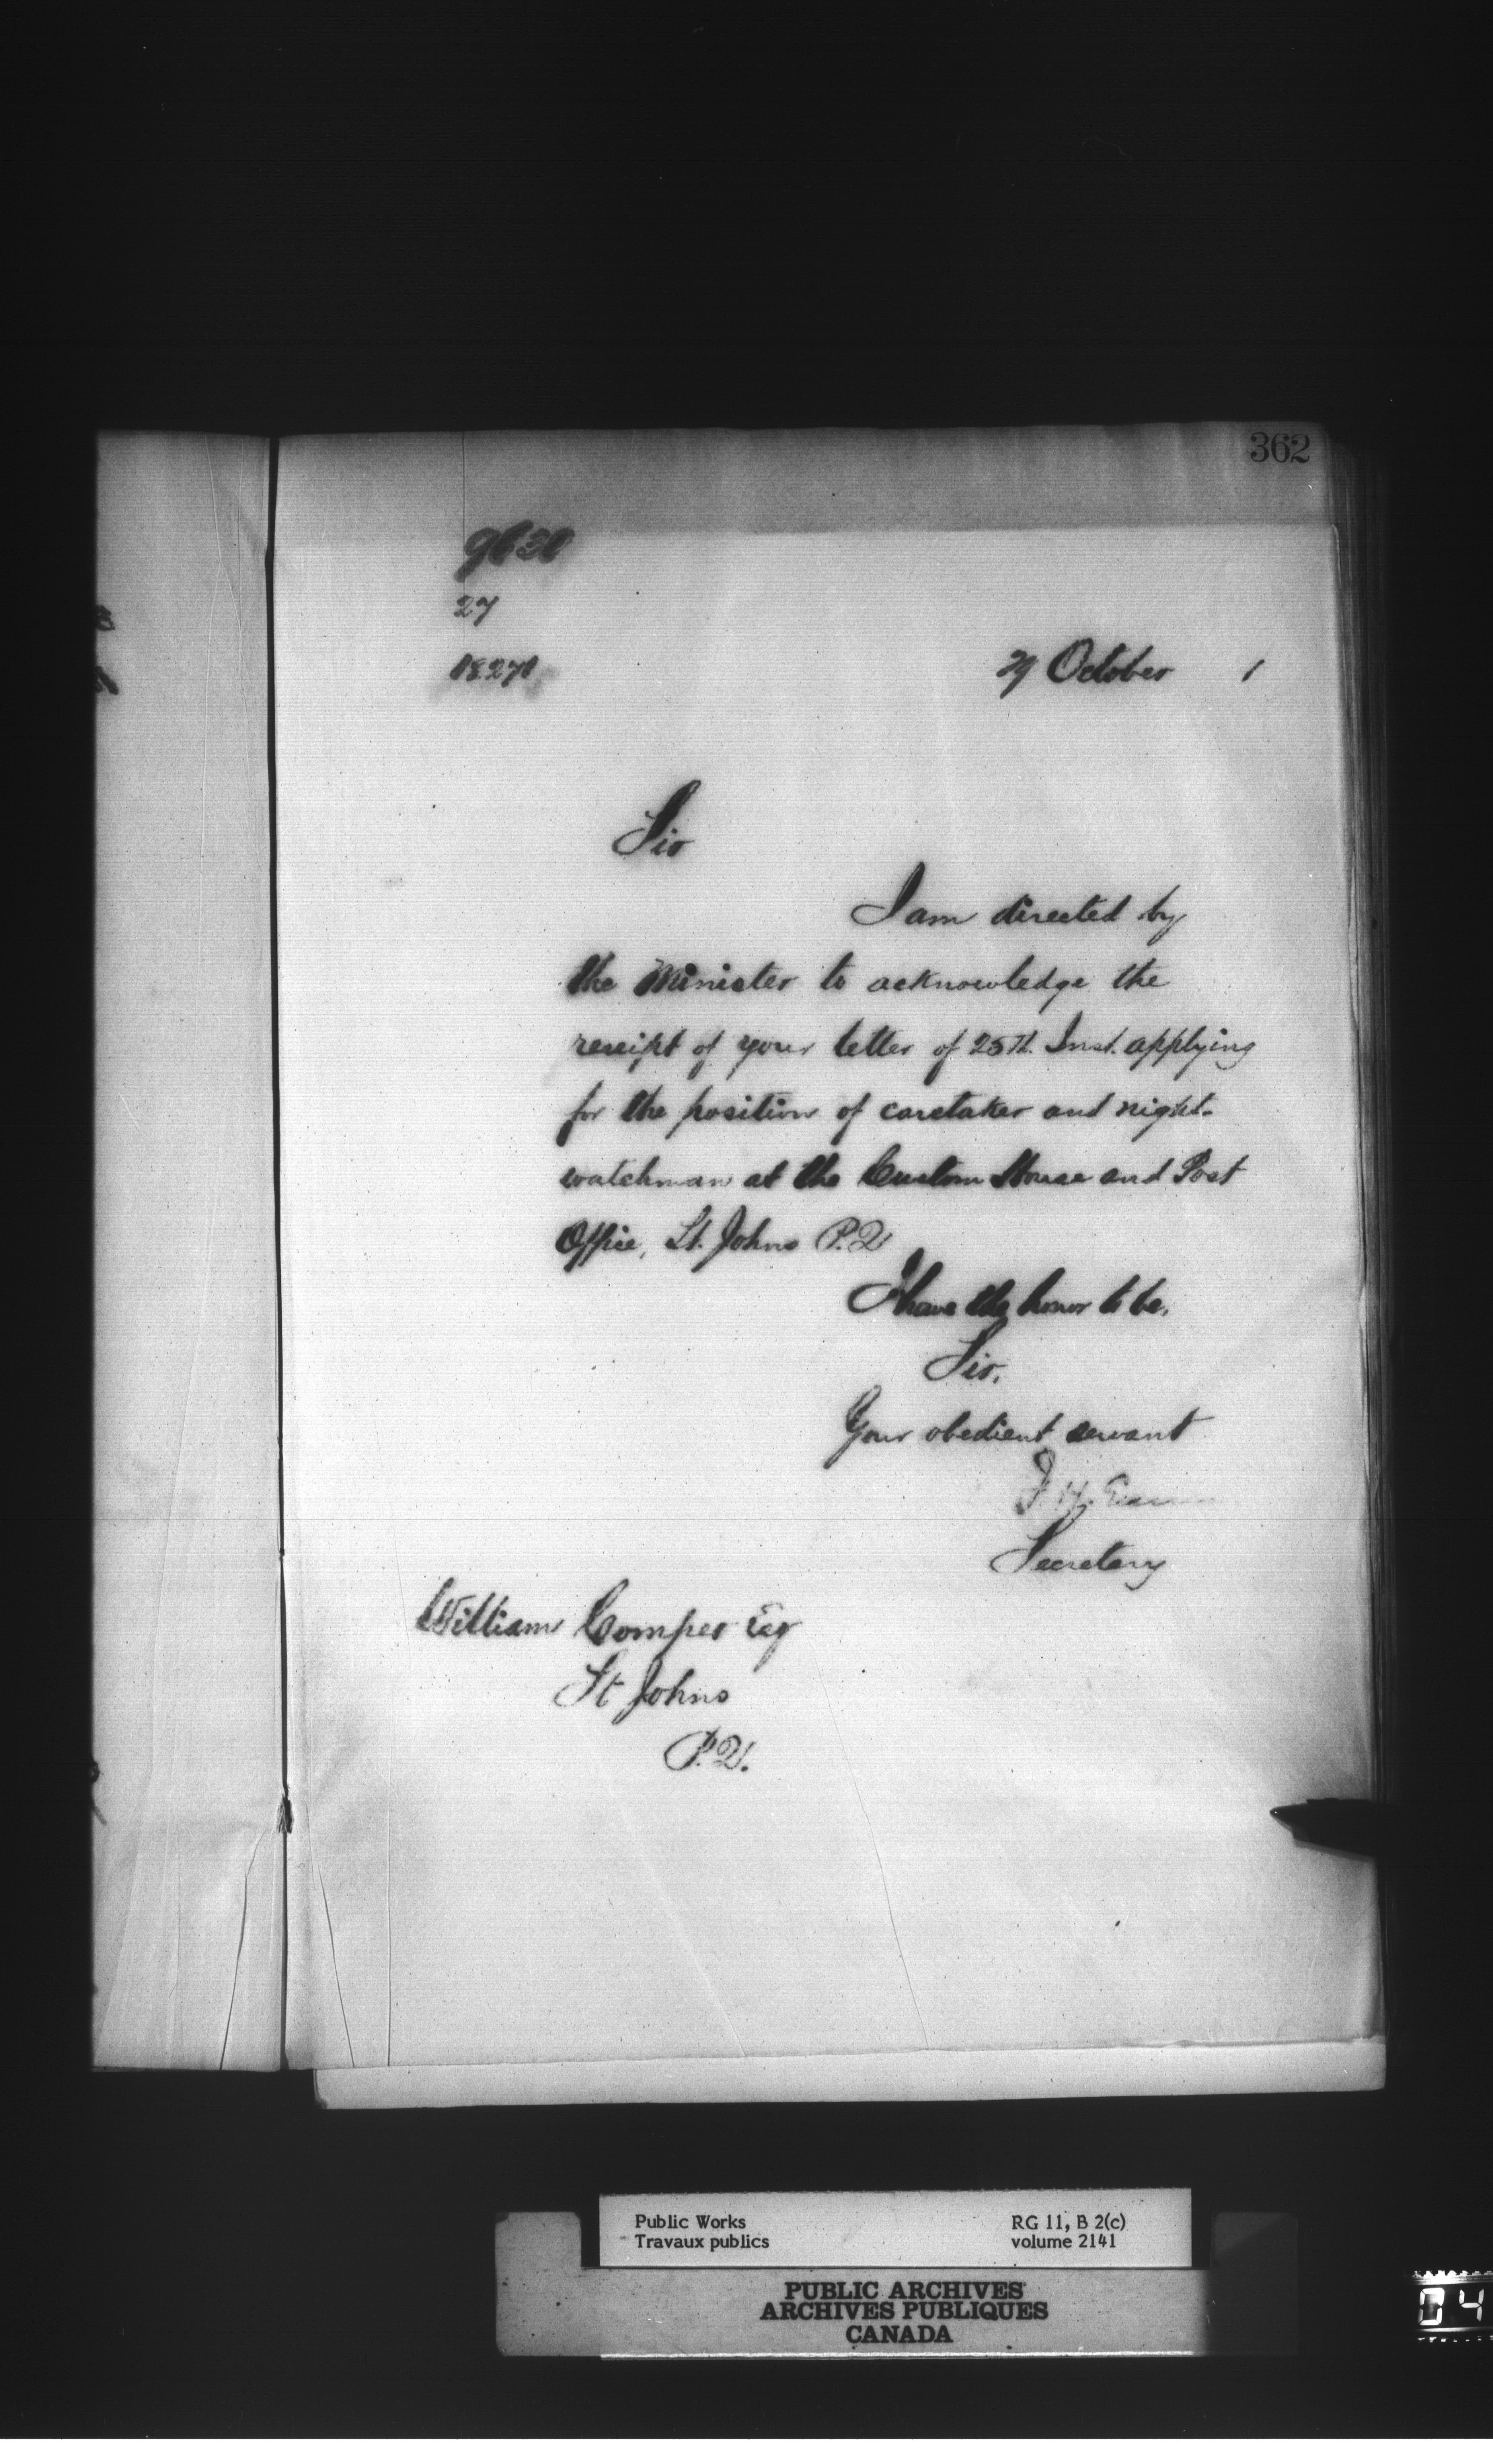 362
9630
27
18271
29 October 1
Sir
I am directed by
the Minister to acknowledge the
receipt of your letter of 25th. Inst. applying
for the position of caretaker and night-
watchman at the Custom House and Post
Office, St. Johns P.Q
I have the honor to be,
Sir,
Your obedient servant
F. H.
Secretary
William Comper Esq
St Johns
P.Q.
Public Works
Travaux publics
RG 11, B 2(c)
volume 2141
PUBLIC ARCHIVES
ARCHIVES PUBLIQUES
CANADA
04